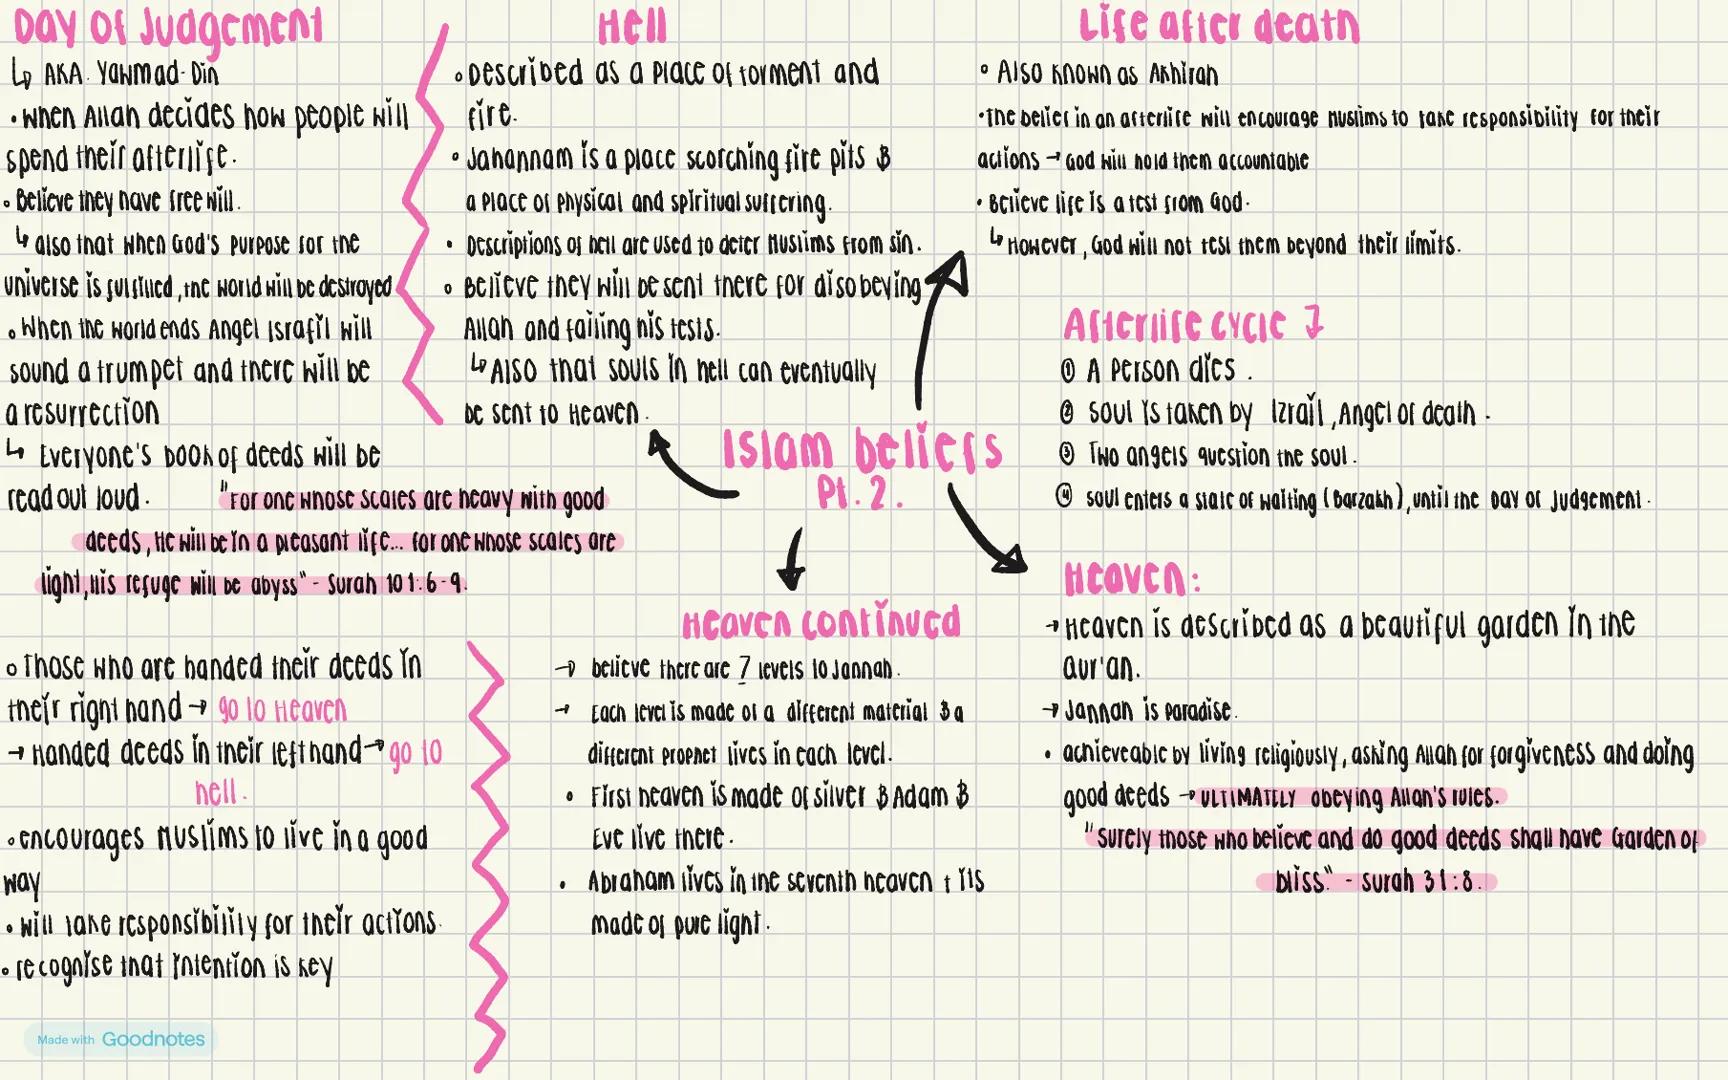 Day of Judgement
↳ AKA. Yawmad-Din
• When Allah decides how people will
spend their afterlife.
• Believe they have free will.
↳ also that when God's purpose for the
universe is fulfilled, the world will be destroyed
• When the world ends Angel Israfil will
sound a trumpet and there will be
a resurrection
↳ Everyone's book of deeds will be
read out loud.
"For one whose scales are heavy with good
deeds, He will be in a pleasant life... for one whose scales are
light, his refuge will be abyss" - Surah 101:6-9.
• Those who are handed their deeds in
their right hand → go to Heaven
→ Handed deeds in their left hand → go to
hell.
• encourages Muslims to live in a good
way
• will take responsibility for their actions.
• recognise that intention is key
Hell
• Described as a place of torment and
fire.
• Jahannam is a place scorching fire pits &
a place of physical and spiritual suffering.
• Descriptions of hell are used to deter Muslims from sin.
• Believe they will be sent there for disobeying
Allah and failing his tests.
↳ Also that souls in hell can eventually
be sent to Heaven.
Islam beliefs
Pt. 2.
Life after death
• Also known as Akhirah
• The belief in an afterlife will encourage Muslims to take responsibility for their
actions → God will hold them accountable
• Believe life is a test from God.
↳ However, God will not test them beyond their limits.
Afterlife cycle
① A person dies.
② Soul is taken by Izrail, Angel of death.
③ Two angels question the soul.
④ Soul enters a state of waiting (Barzakh), until the Day of Judgement.
Heaven:
→ Heaven is described as a beautiful garden in the
Qur'an.
→ Jannah is paradise.
• achieveable by living religiously, asking Allah for forgiveness and doing
good deeds → ULTIMATELY obeying Allah's rules.
"Surely those who believe and do good deeds shall have Garden of
bliss." - Surah 31:8.
Heaven continued
→ believe there are 7 levels to Jannah.
→ Each level is made of a different material & a
different prophet lives in each level.
• First heaven is made of silver & Adam &
Eve live there.
• Abraham lives in the seventh heaven + its
made of pure light.
Made with Goodnotes